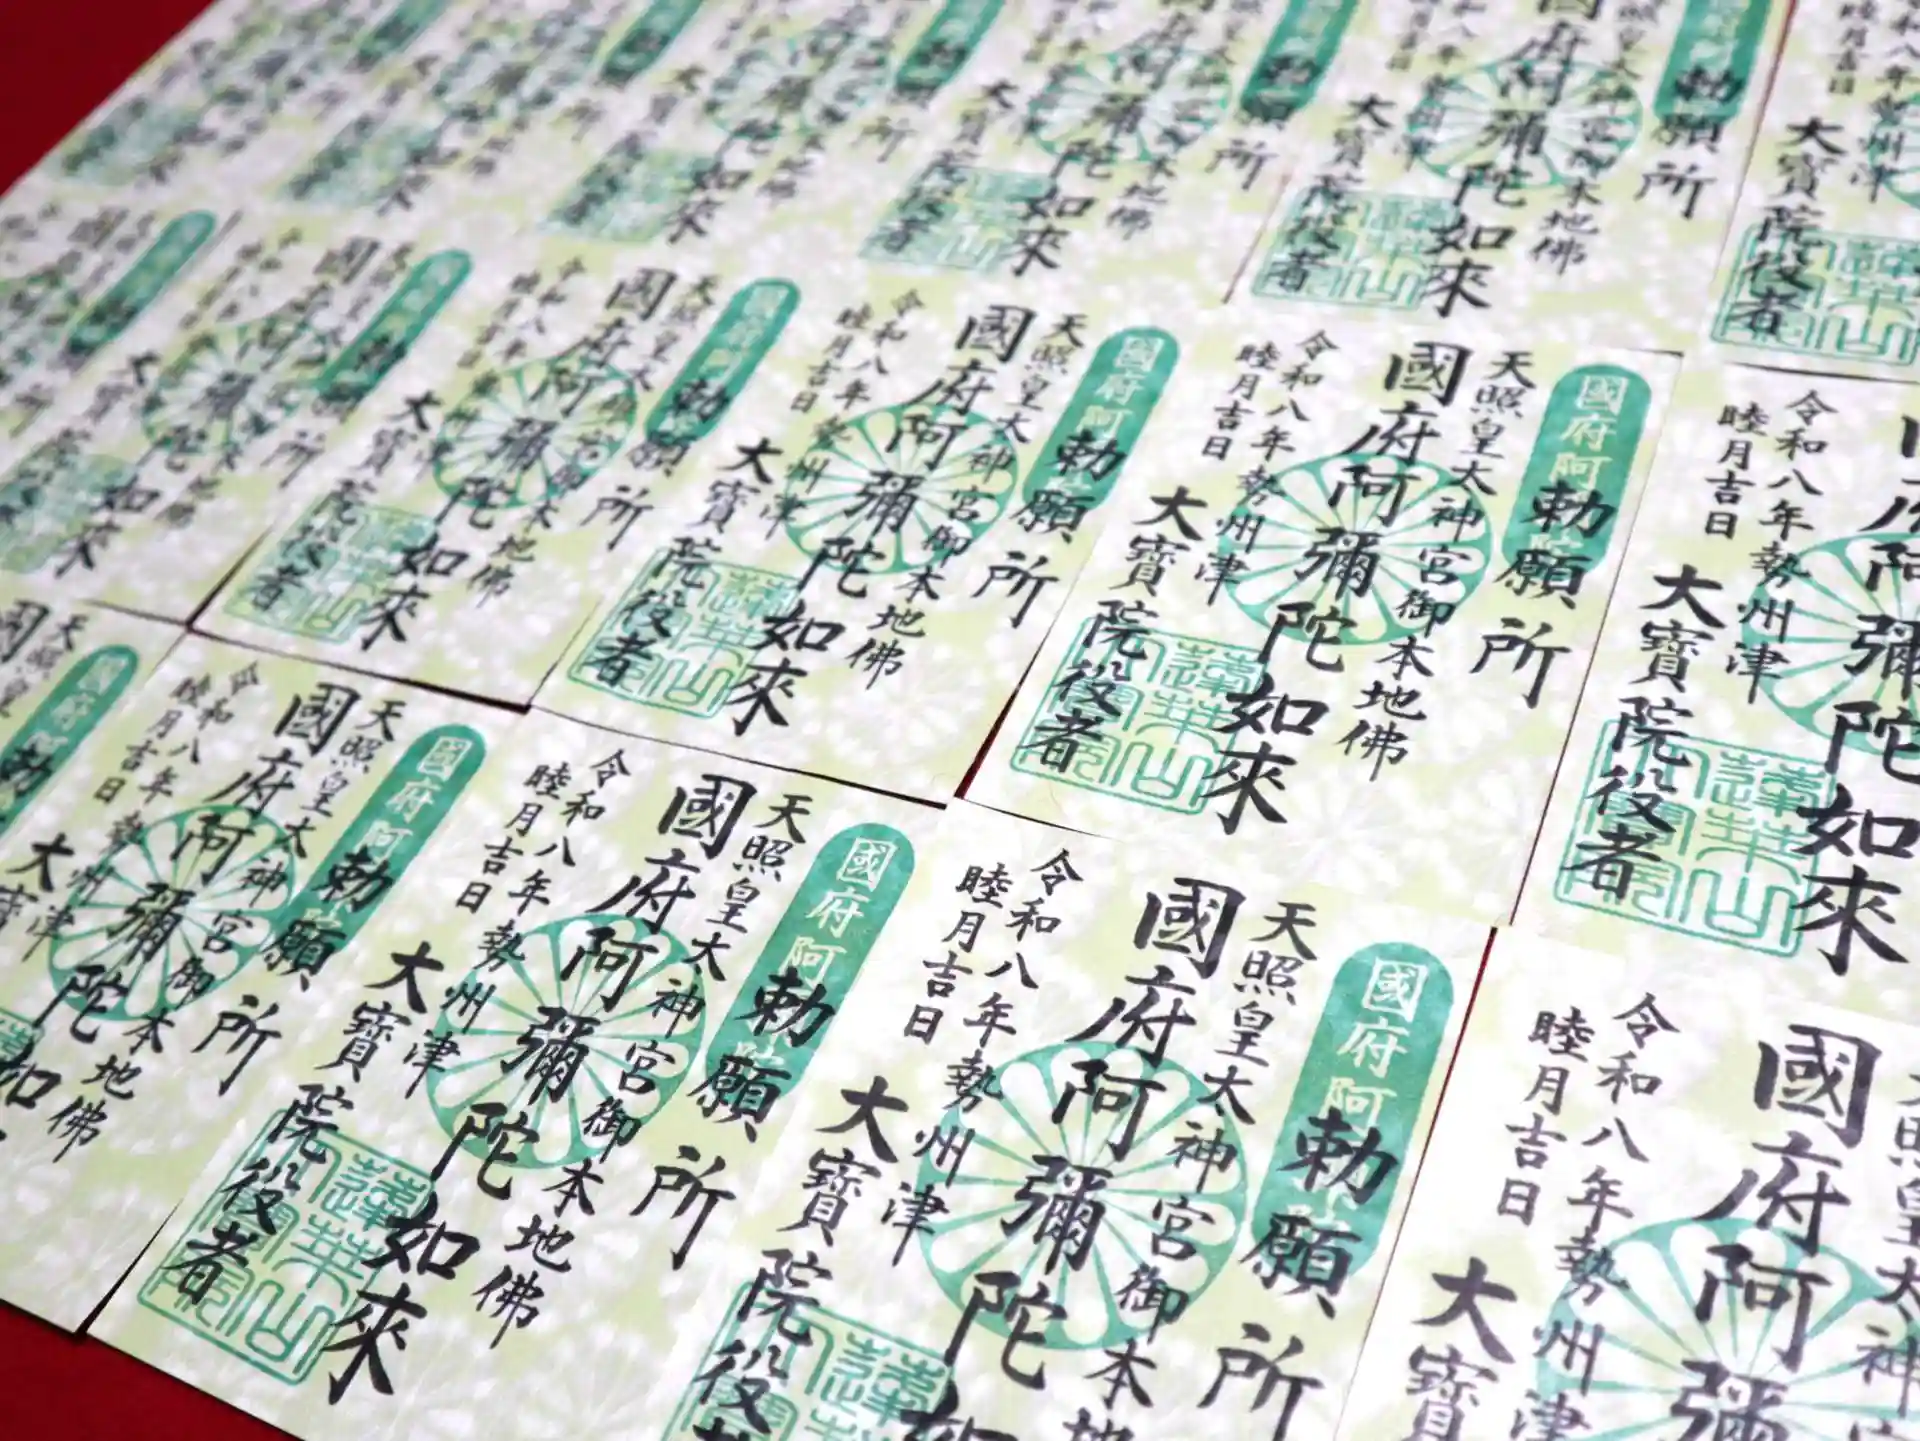 勅願所
國府阿
天照皇大神宮御本地佛
國府阿彌陀如來
令和八年勢州津
睦月吉日
大寶院役者